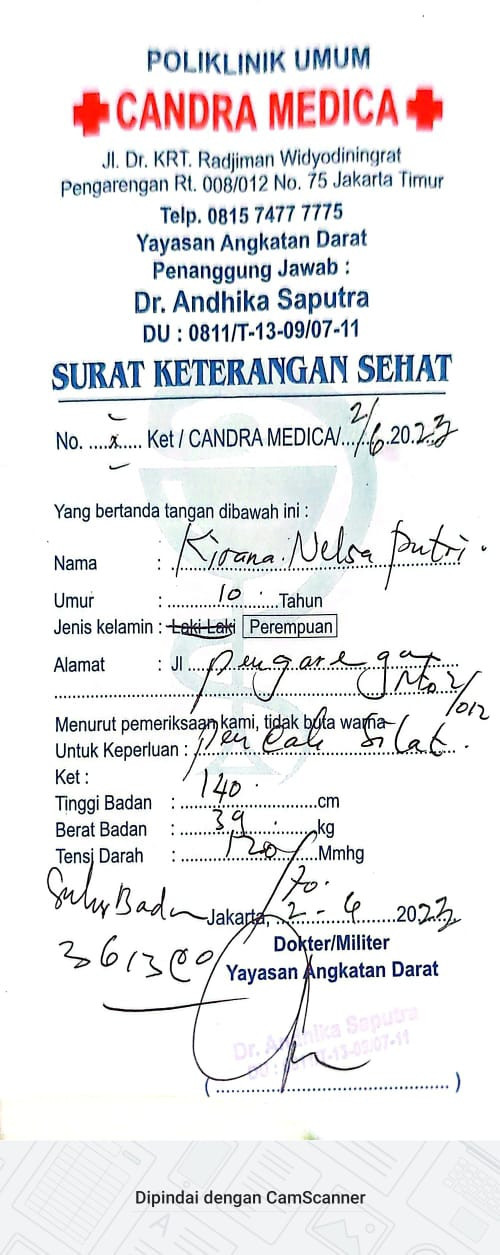 POLIKLINIK UMUM
CANDRA MEDICA
Jl. Dr. KRT. Radjiman Widyodiningrat
Pengarengan Rt. 008/012 No. 75 Jakarta Timur
Telp. 0815 7477 7775
Yayasan Angkatan Darat
Penanggung Jawab :
Dr. Andhika Saputra
DU : 0811/T-13-09/07-11
SURAT KETERANGAN SEHAT
No. ......... Ket / CANDRA MEDICA/...2/6.2023
Yang bertanda tangan dibawah ini :
Nama : Kirana Nelsa Putri.
Umur : 10 Tahun
Jenis kelamin : Laki-Laki Perempuan
Alamat : Jl ... Pengarengan
/012
Menurut pemeriksaan kami, tidak buta warna
Untuk Keperluan : Pencak Silat.
Ket :
Tinggi Badan : 140 cm
Berat Badan : 39 kg
Tensi Darah : 120/70. Mmhg
Suhu Badan
Jakarta, 2 - 6 2023
Dokter/Militer
Yayasan Angkatan Darat
Dr. Andhika Saputra
DU : 0811/T-13-09/07-11
(........................................)
Dipindai dengan CamScanner